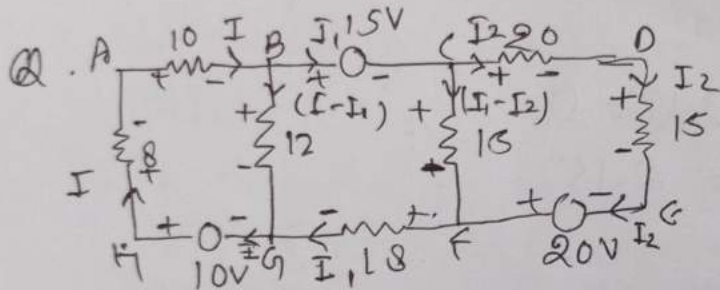 Q. A 10 I B I₁ 15V C I₂ 20 D
+ - + - + - I₂
+ (I-I₁) + (I₁-I₂) +
- 8 + 12 15
I - -
+ - - + + -
H 10V I G I₁ 18 F 20V I₂